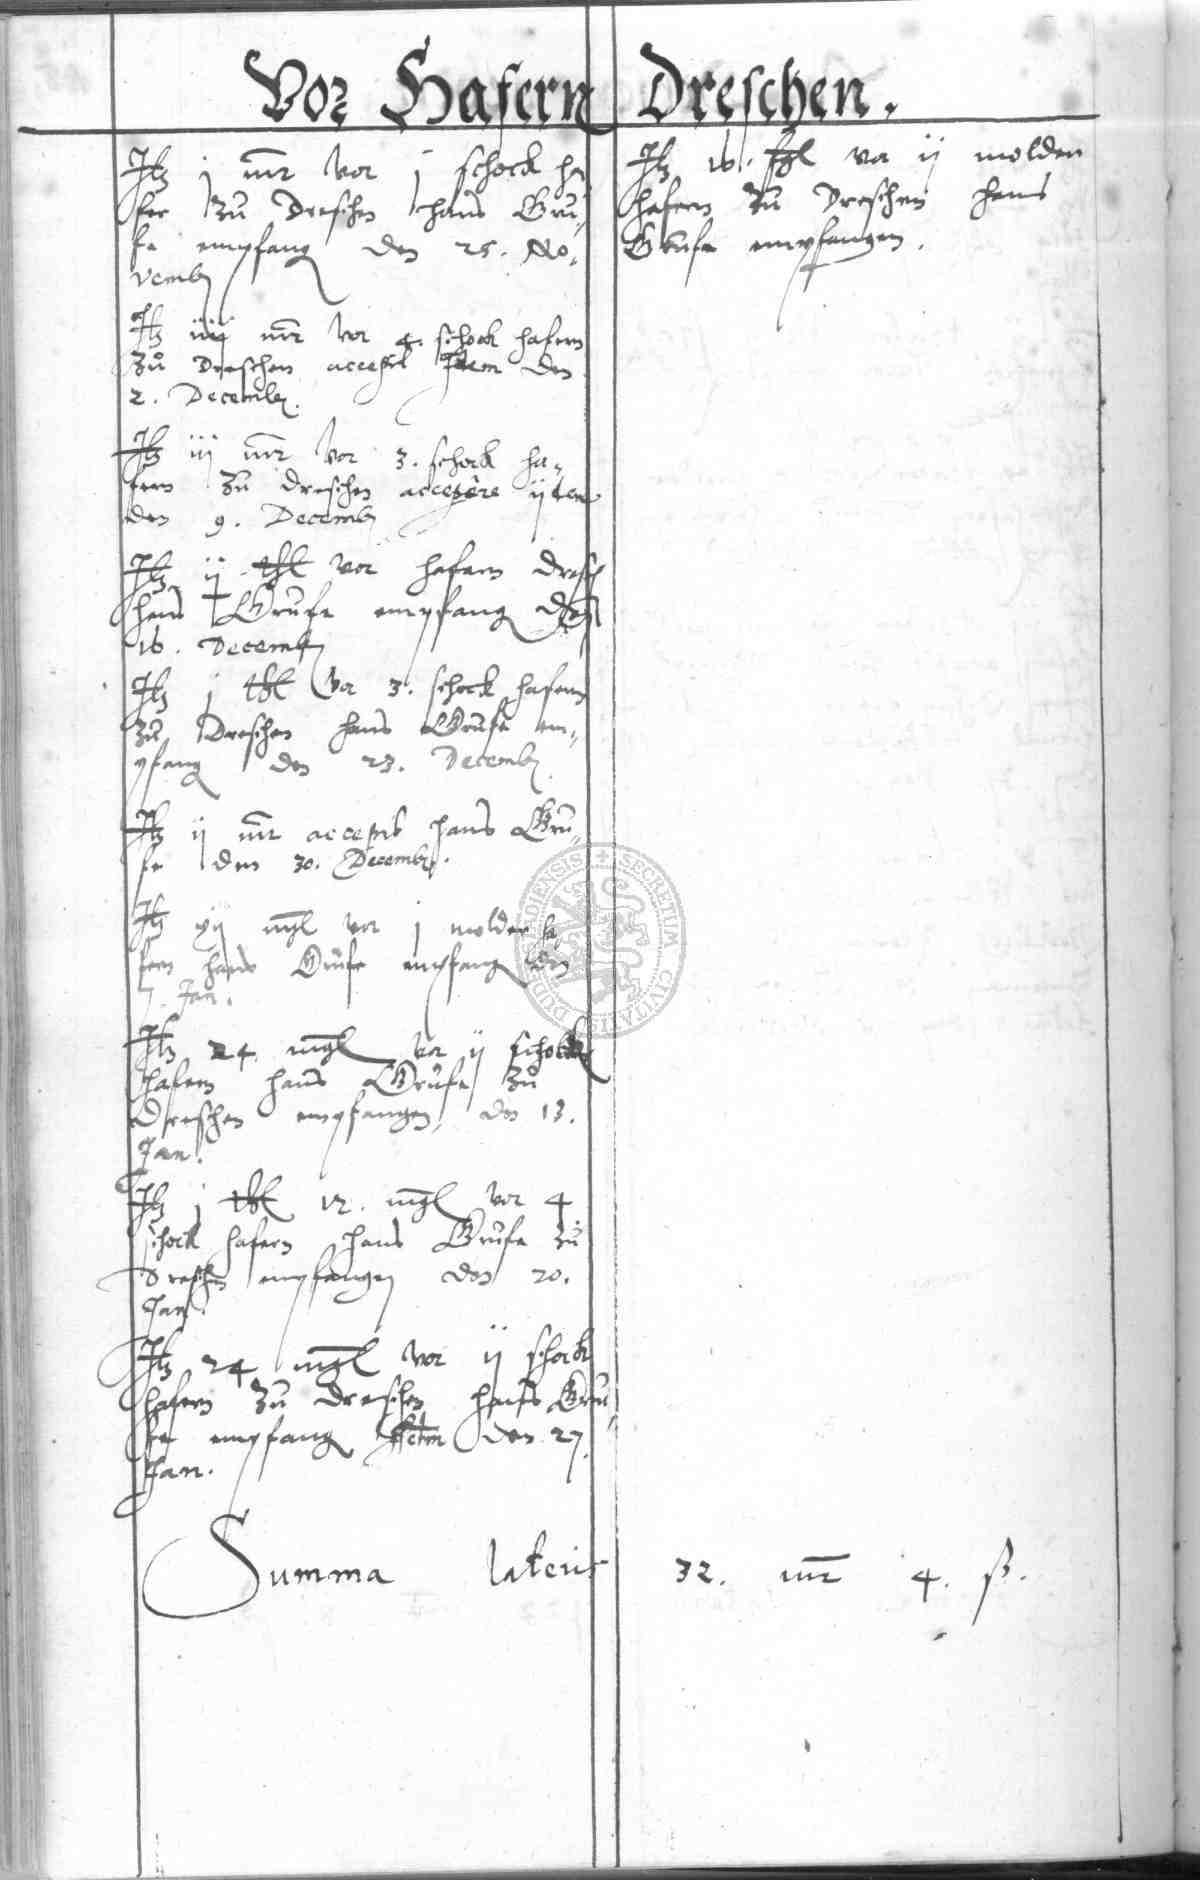 Vor Hafern Dreschen.
Itz j mr vor j schock ha
fer zu Dreschen hans Gru
fe empfang den 25. No-
vemb
Itz iiij mr vor 4. schock hafern
zu Dreschen accepit Item den
2. Decemb.
Itz iij mr vor 3. schock ha-
fern zu dreschen accepere
den 9. Decemb
Itz ij thl vor hafern dresch
hans Grufe empfang den
16. Decemb
Itz j thl vor 3. schock hafern
zu Dreschen hans Grufe em-
pfang den 23. Decemb.
Itz ij mr accepit hans Gru-
fe den 30. Decemb.
Itz xij mgl vor j molder ha
fern hans Grufe empfang den
7. Jan.
Itz 24. mgl vor ij schock
hafern hans Grufe zu
Dreschen empfangen, den 13.
Jan.
Itz j thl 12. mgl vor 4
schock hafern hans Grufe zu
Dreschen empfangen den 20.
Jan.
Itz 24 mgl vor ij schock
hafern zu dreschen hans Gru
fe empfang den 27.
Jan.
Itz 16. vor ij molden
hafern zu Dreschen hans
Grufe empfangen.
Summa lateris 32. mr 4. ß.
SECRETUM CIVITATIS DUDERSTADIENSIS